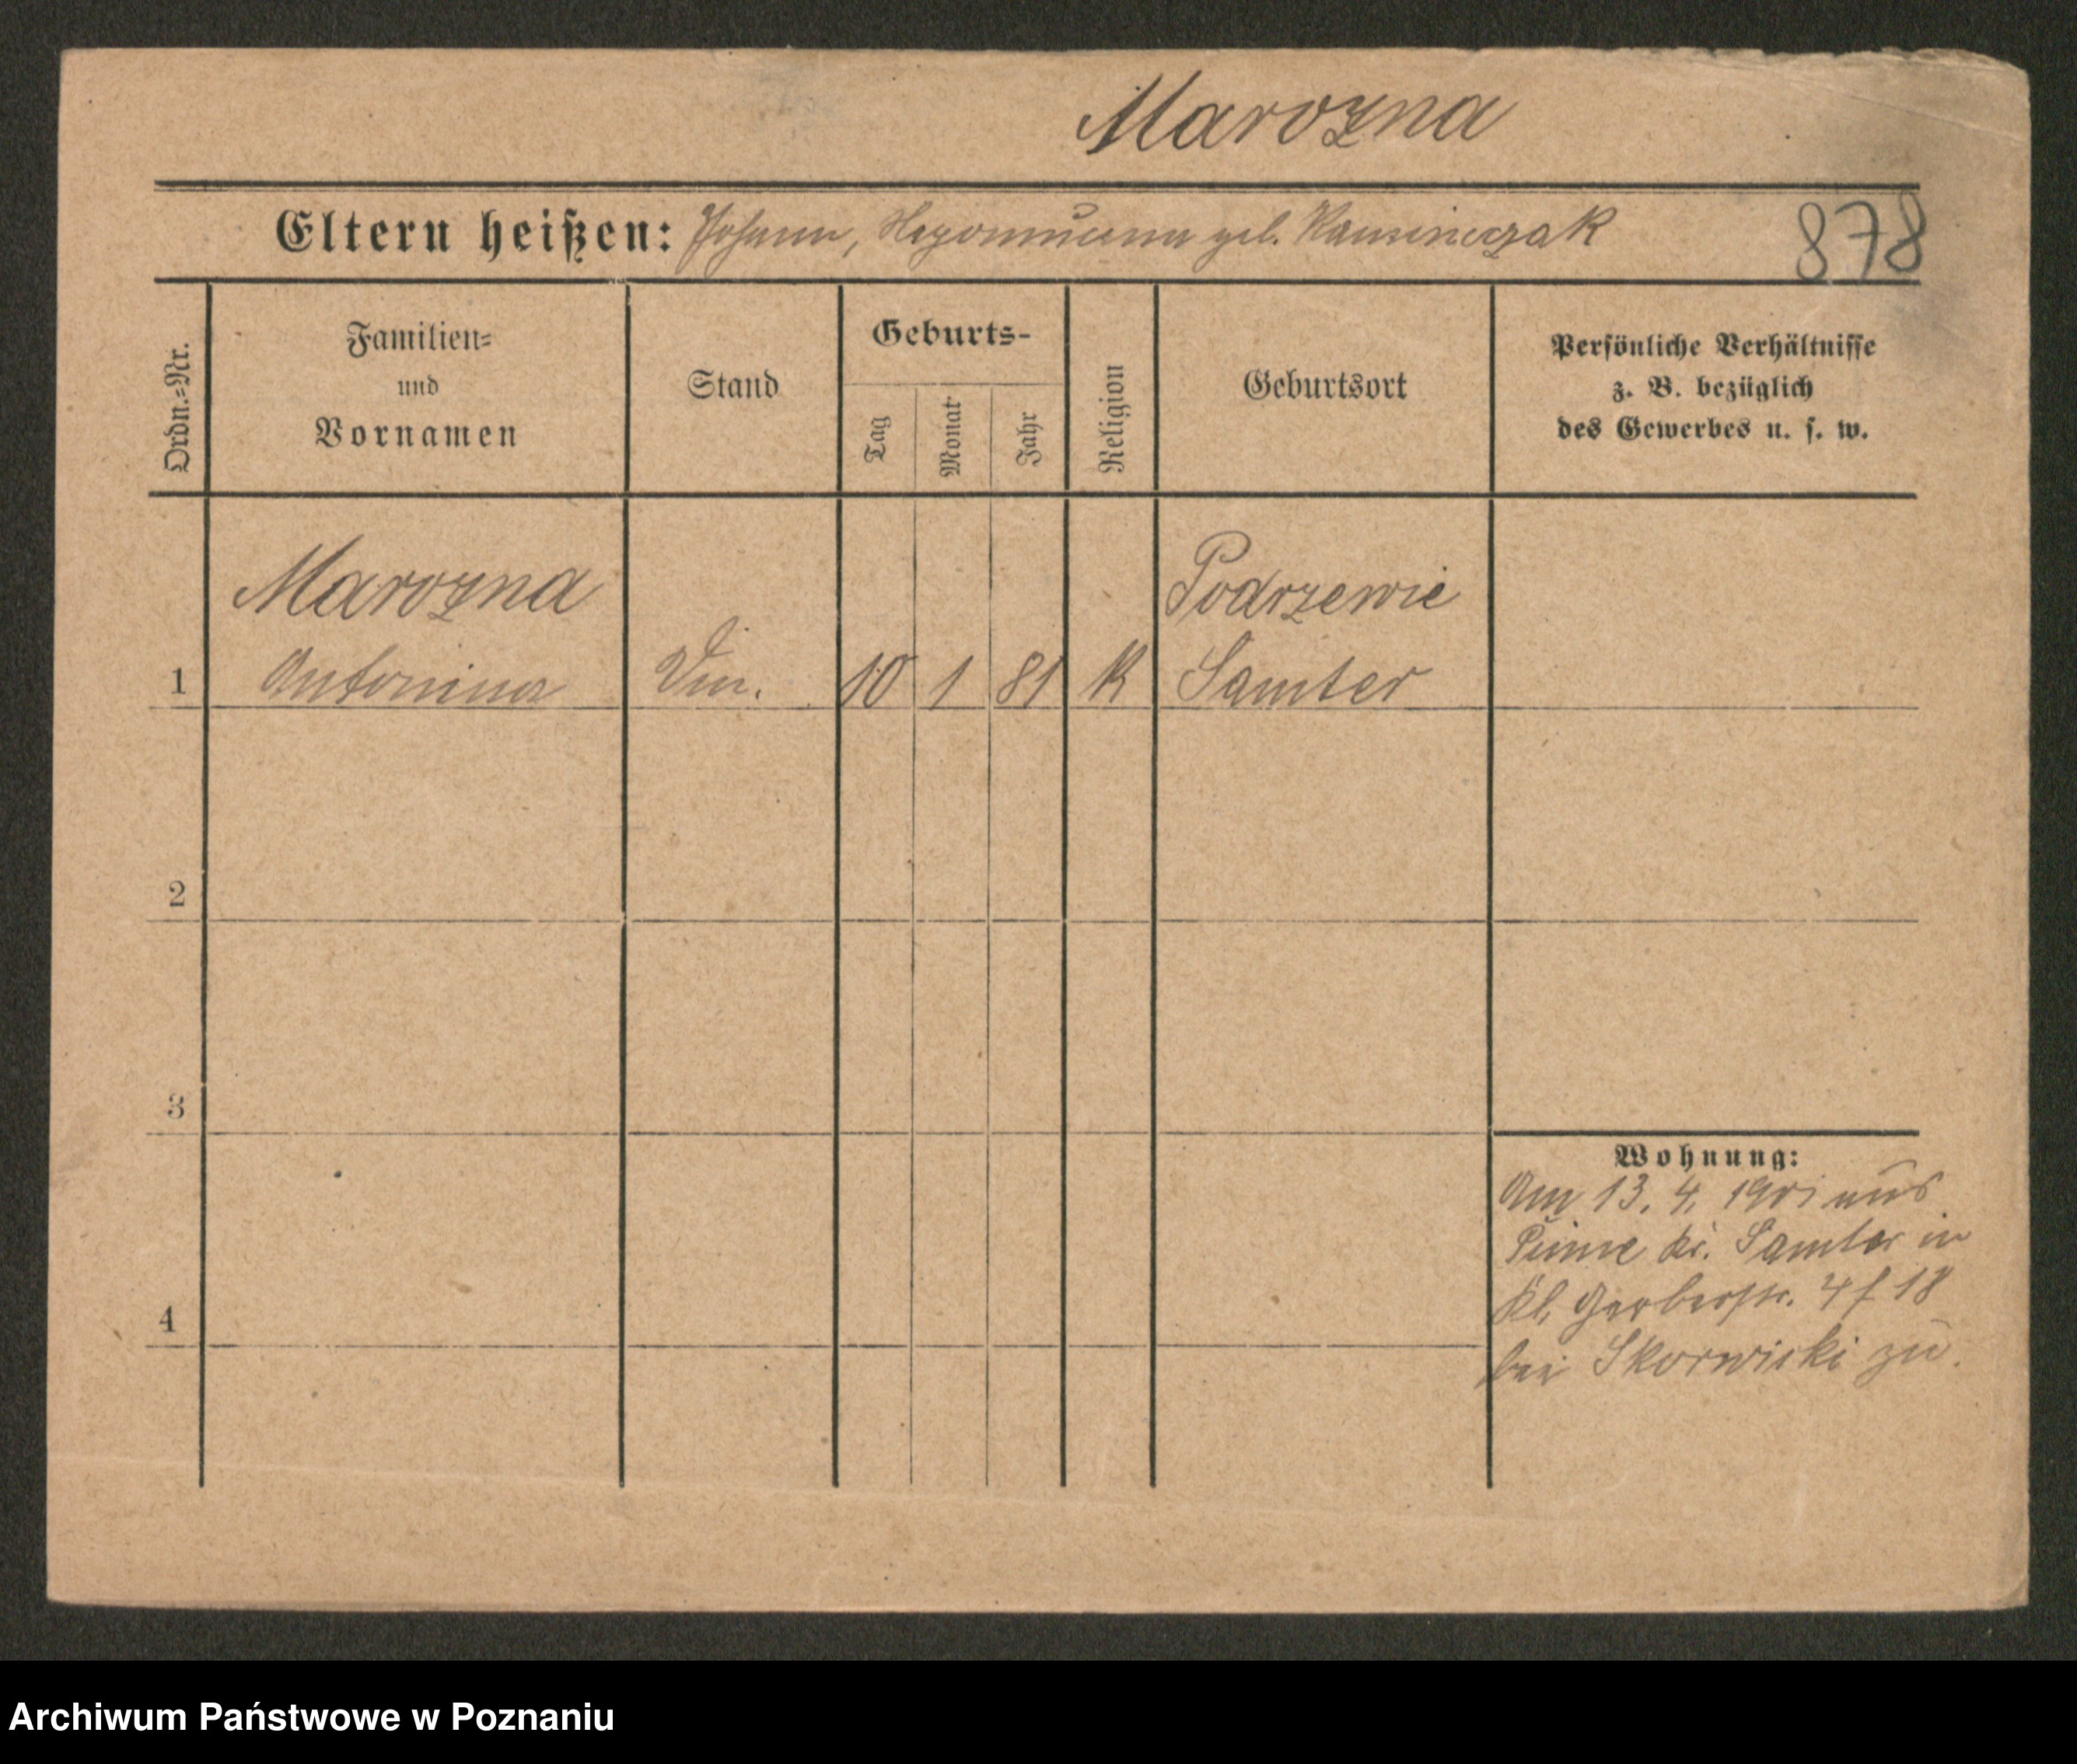 Marozna
Eltern heißen: Johann, Nepomucena geb. Kaminiczak
878
Ordn.-Nr.
Familien-
und
Vornamen
Stand
Geburts-
Tag
Monat
Jahr
Religion
Geburtsort
Persönliche Verhältnisse
z. B. bezüglich
des Gewerbes u. s. w.
Marozna
Podrzewie
1 Antonina 10 1 81 K Samter
2
3
4
Wohnung:
Am 13. 4. 1901 aus
Pinne Kr. Samter in
Kl. Gerberstr. 4 f 18
bei Skorwiski zu.
Archiwum Państwowe w Poznaniu